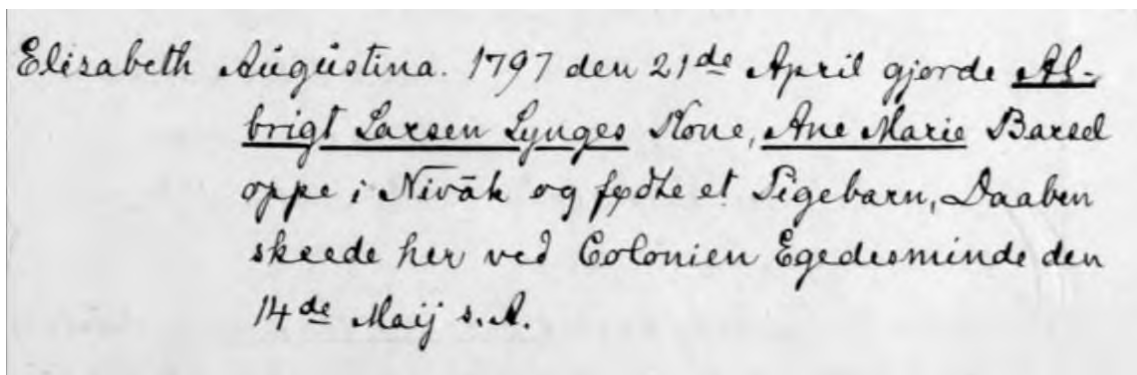 Elisabeth Augustina. 1797 den 21de April gjorde Al-
brigt Larsen Lynges Kone, Ane Marie Barsel
oppe i Nivâk og fødte et Pigebarn, Daaben
skeede her ved Colonien Egedesminde den
14de Maij s. A.